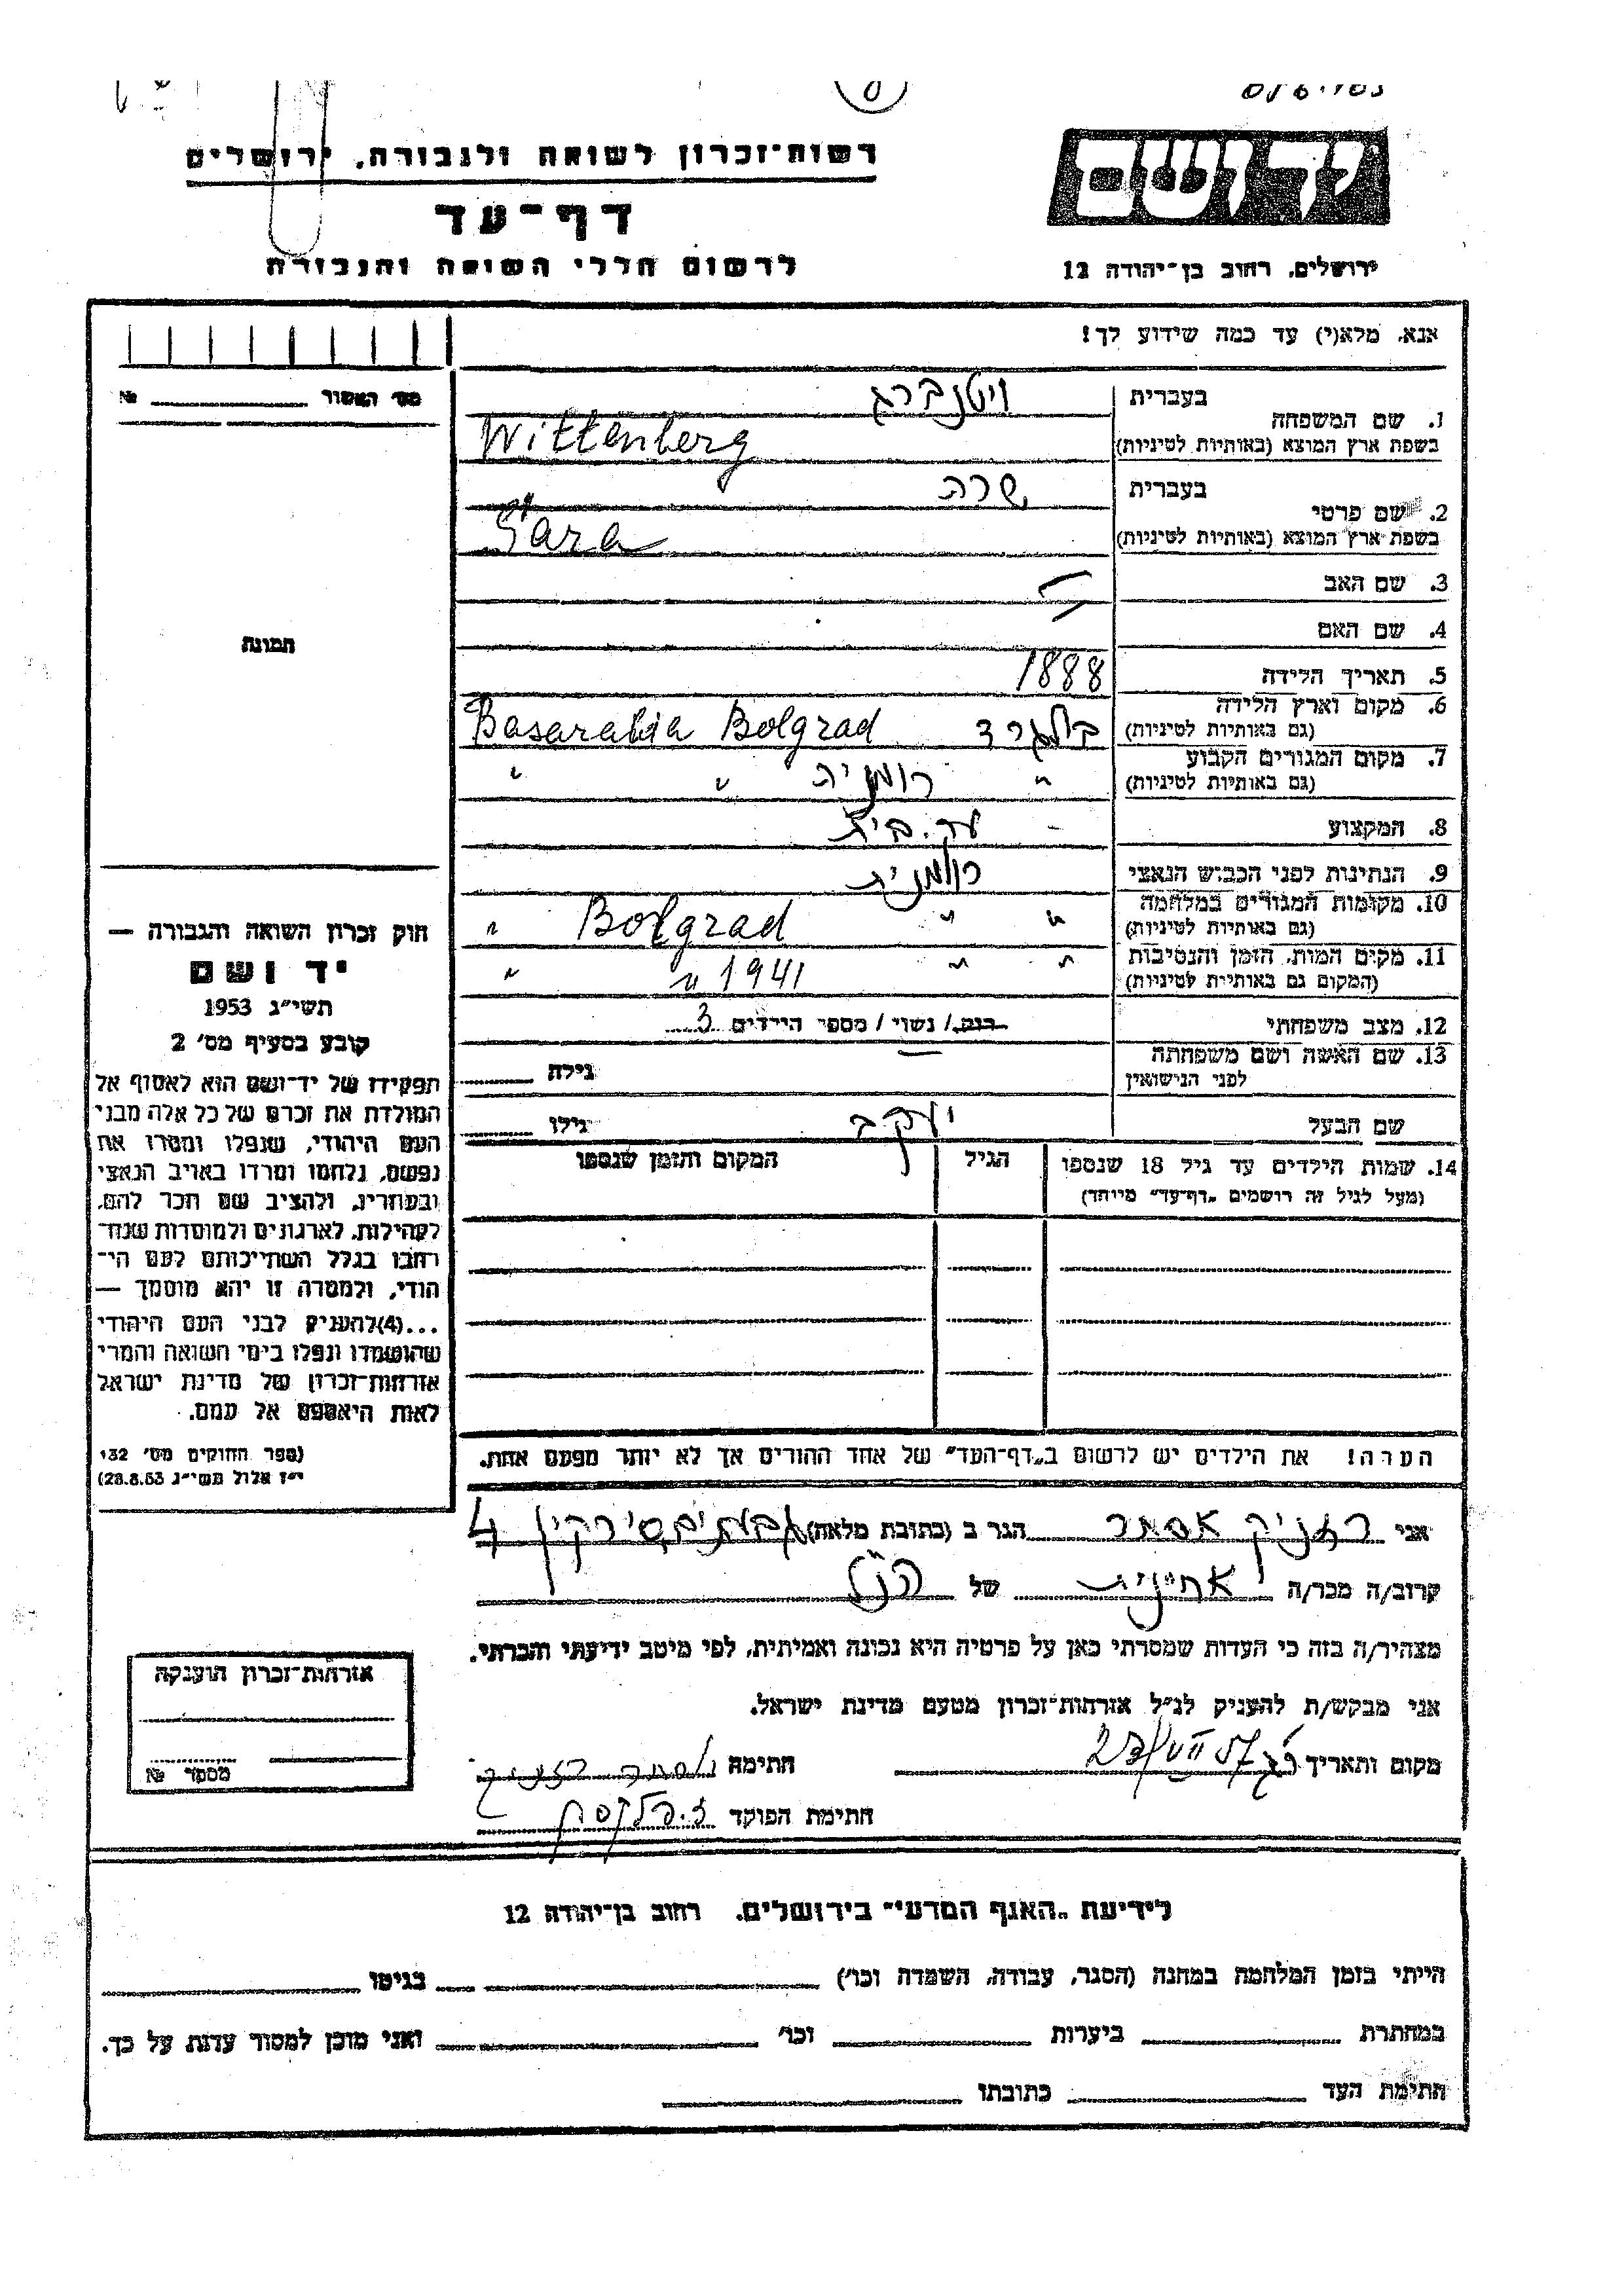 רשות-זכרון לשואה ולגבורה, ירושלים
יד ושם
דף-עד
לרשום חללי השואה והגבורה
ירושלים, רחוב בן-יהודה 12
אנא, מלא(י) עד כמה שידוע לך!
מס' האשור №
1. שם המשפחה
בעברית ויטנברג
בשפת ארץ המוצא (באותיות לטיניות) Wittenberg
2. שם פרטי
בעברית שרה
בשפת ארץ המוצא (באותיות לטיניות) Sara
3. שם האב
4. שם האם
5. תאריך הלידה 1888
6. מקום וארץ הלידה
(גם באותיות לטיניות) בולגרד Basarabia Bolgrad
7. מקום המגורים הקבוע
(גם באותיות לטיניות) " רומניה " "
8. המקצוע עק. בית
9. הנתינות לפני הכבוש הנאצי רומנית
10. מקומות המגורים במלחמה
(גם באותיות לטיניות) " " Bolgrad "
11. מקום המות, הזמן והנסיבות
(המקום גם באותיות לטיניות) " " 1941 " "
12. מצב משפחתי רווק / נשוי / מספר הילדים 3
13. שם האשה ושם משפחתה
לפני הנישואין גילה
שם הבעל יעקב גילו
14. שמות הילדים עד גיל 18 שנספו הגיל המקום והזמן שנספו
(מעל לגיל זה רושמים "דף-עד" מיוחד)
הערה! את הילדים יש לרשום ב"דף-העד" של אחד ההורים אך לא יותר מפעם אחת.
תמונה
חוק זכרון השואה והגבורה —
יד ושם
תשי"ג 1953
קובע בסעיף מס' 2
תפקידו של יד-ושם הוא לאסוף אל
המולדת את זכרם של כל אלה מבני
העם היהודי, שנפלו ומסרו את
נפשם, נלחמו ומרדו באויב הנאצי
ובעוזריו, ולהציב שם וזכר להם,
לקהילות, לארגונים ולמוסדות שנח-
רבו בגלל השתייכותם לעם הי-
הודי, ולמטרה זו יהא מוסמך —
...(4)להעניק לבני העם היהודי
שהושמדו ונפלו בימי השואה והמרי
אזרחות-זכרון של מדינת ישראל
לאות היאספם אל עמם.
(ספר החוקים מס' 132
י"ז אלול תשי"ג 28.8.53)
אני רזניק אסתר הגר ב (כתובת מלאה) גבעתיים סירקין 4
קרוב/ה מכר/ה אחינית של הנ"ל
מצהיר/ה בזה כי העדות שמסרתי כאן על פרטיה היא נכונה ואמיתית, לפי מיטב ידיעתי והכרתי.
אני מבקש/ת להעניק לנ"ל אזרחות-זכרון מטעם מדינת ישראל.
מקום ותאריך חתימה אסתר רזניק
חתימת הפוקד
אזרחות-זכרון הוענקה
מספר №
לידיעת "האגף המדעי" בירושלים, רחוב בן-יהודה 12
הייתי בזמן המלחמה במחנה (הסגר, עבודה, השמדה וכו') בגיטו
במחתרת ביערות וכו' ואני מוכן למסור עדות על כך.
חתימת העד כתובתו